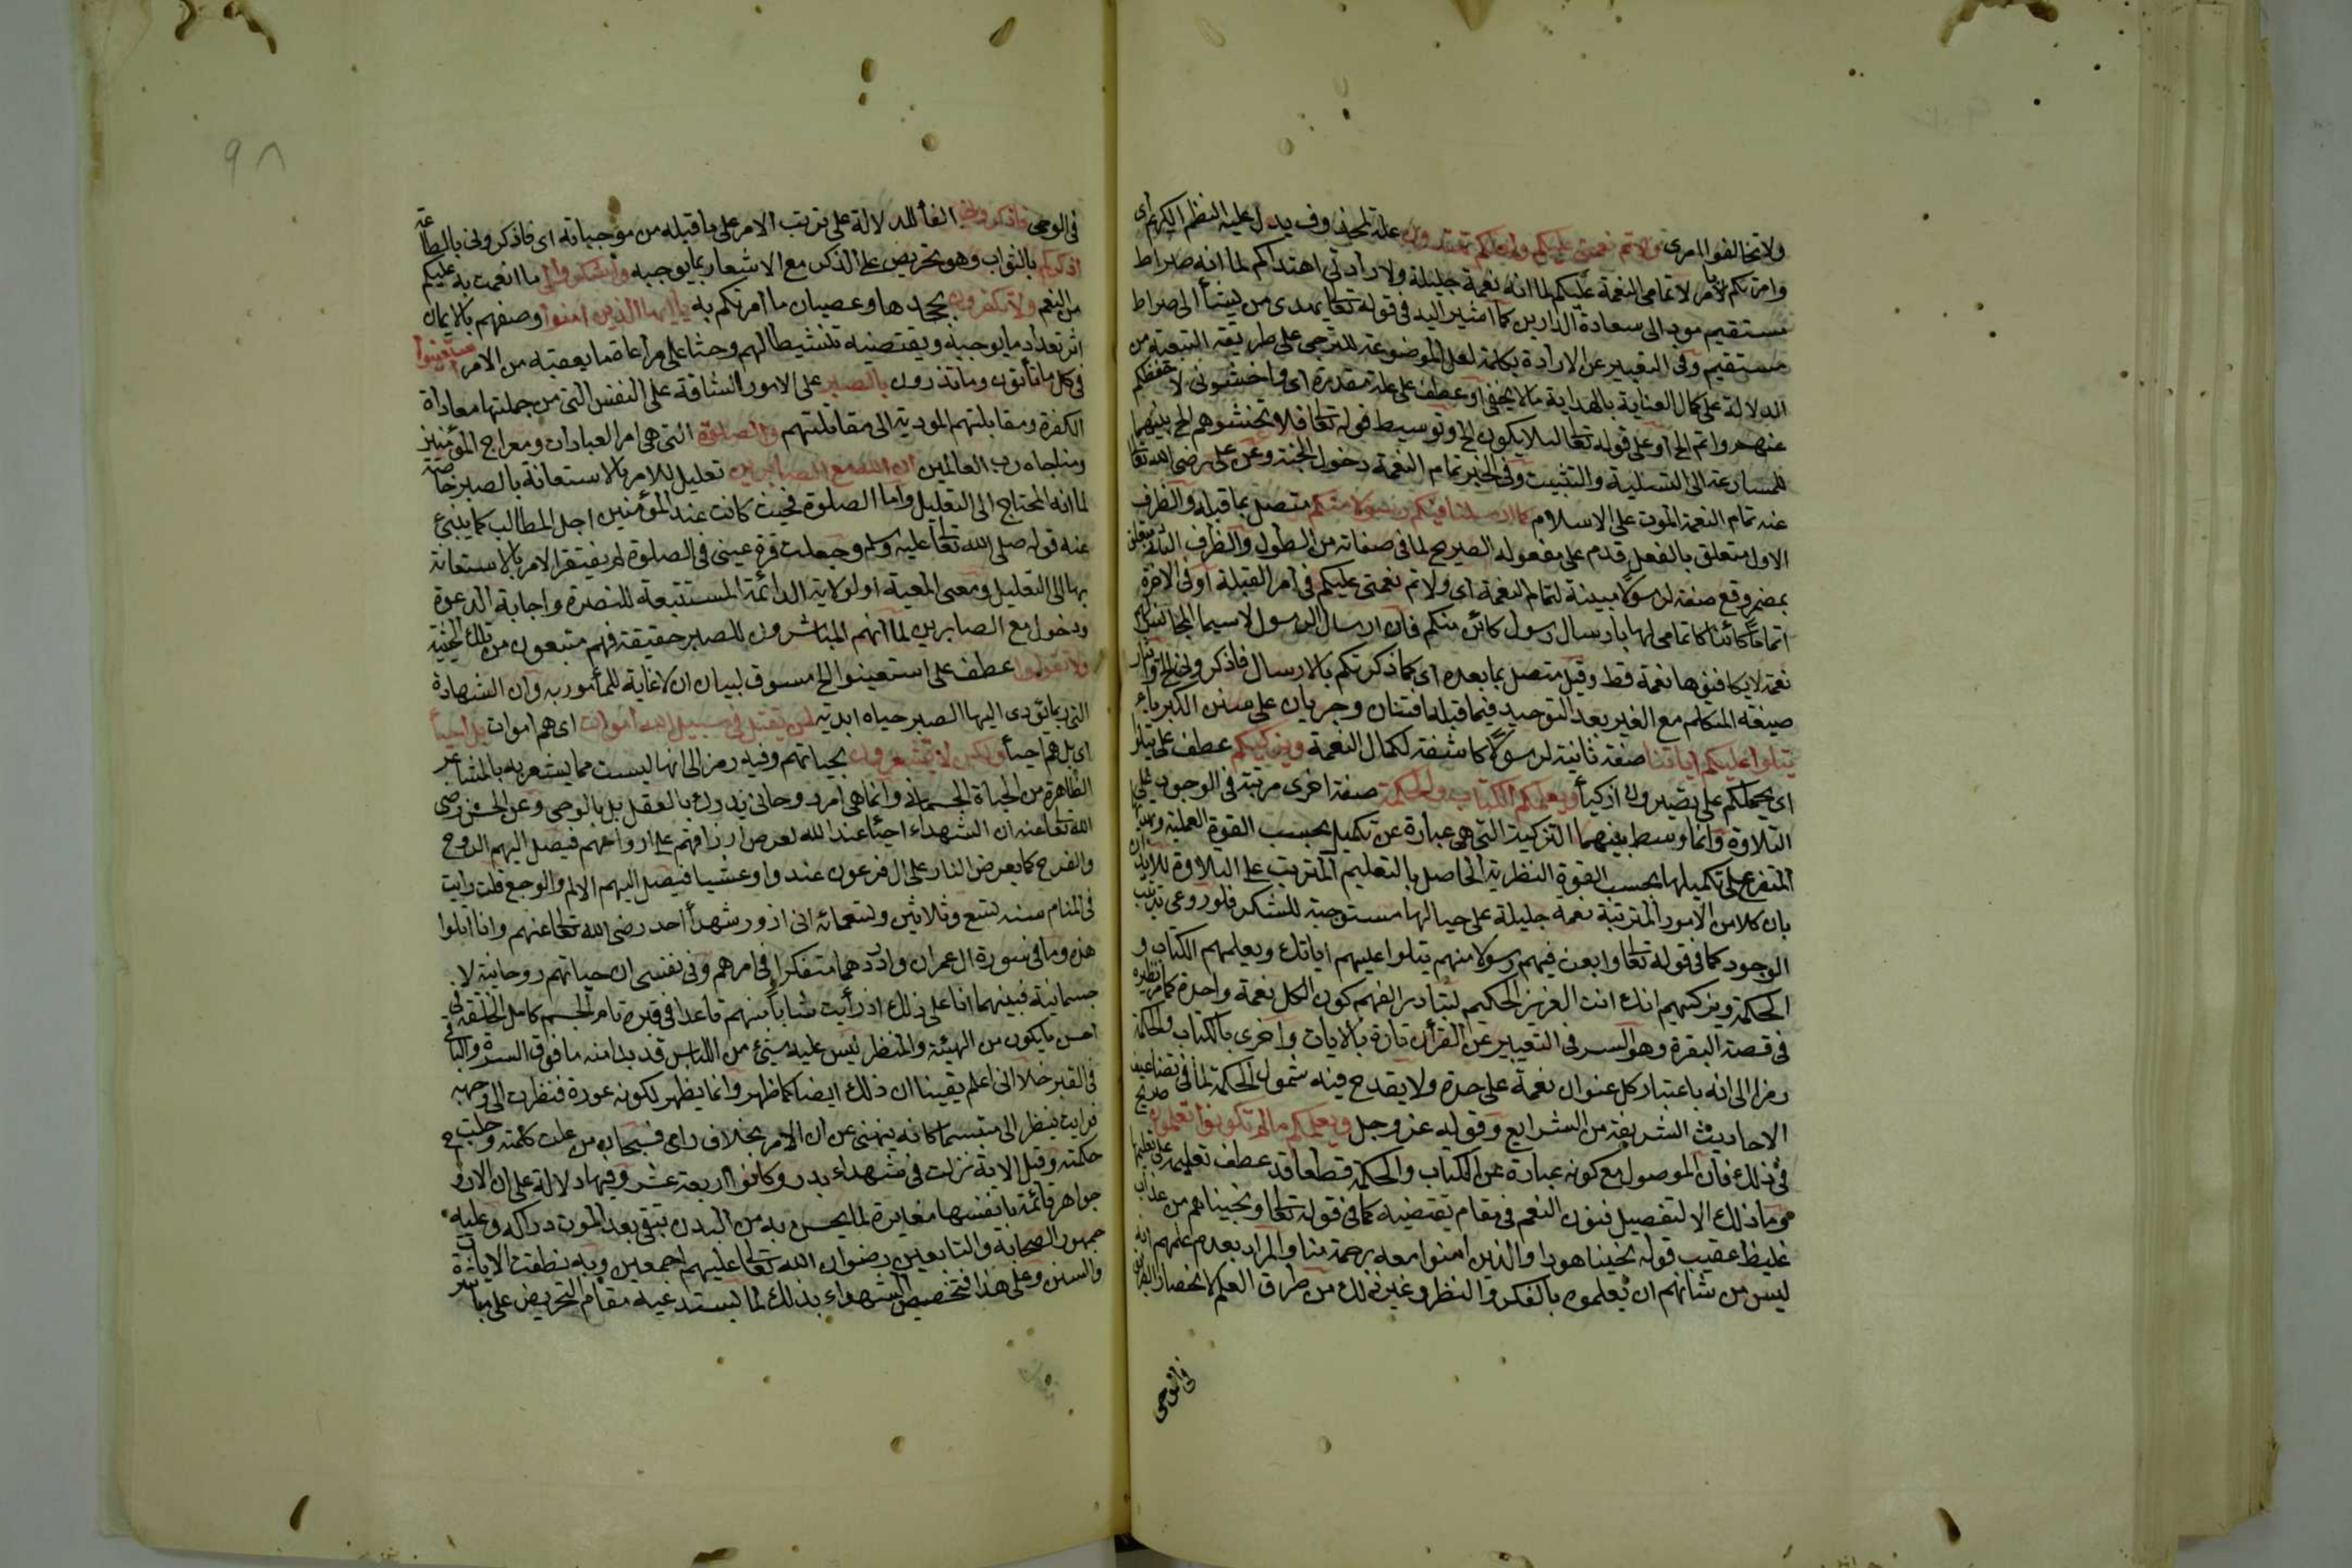 ولا تخالفوا امرى ولاتم نعمتى عليكم ولعلكم تهتدون علة لمحذوف يدل عليه النظم الكريم اى
وامرتكم بالامر لاتمامى النعمة عليكم لما انه نعمة جليلة ولارادتى اهتداكم لما انه صراط
مستقيم مود الى سعادة الدارين كما اشير اليه فى قوله تعالى يهدى من يشأ الى صراط
مستقيم وفى التعبير عن الارادة بكلمة لعل الموضوعة للترجى على طريقة التبعية من
الدلالة على كمال العناية بالهداية ما لا يخفى او عطف على علة مقدرة اى واخشونى لاحفظكم
عنهم واتم الخ او على قوله تعالى لئلا يكون الخ وتوسيط قوله تعالى فلا تخشوهم الخ بينهما
للمسارعة الى التسلية والتثبيت وفى الخبر تمام النعمة دخول الجنة وعن على رضى الله تعالى
عنه تمام النعمة الموت على الاسلام كما ارسلنا فيكم رسولا منكم متصل بما قبله والظرف
الاول متعلق بالفعل قدم على مفعوله الصريح لما فى صفاته من الطول والظرف الثانى متعلق
بمضمر وقع صفة لرسولا مبينة لتمام النعمة اى ولاتم نعمتى عليكم فى امر القبلة او فى الاخرة
اتماما كائنا كاتمامى لها بارسال رسول كائن منكم فان ارسال الرسول لاسيما المجانس لهم
نعمة لا يكافئها نعمة قط وقيل متصل بما بعده اى كما ذكرتكم بالارسال فاذكرونى الخ وايثار
صيغة المتكلم مع الغير بعد التوحيد فيما قبله افتنان وجريان على سنن الكبرياء
يتلوا عليكم اياتنا صفة ثانية لرسولا كاشفة لكمال النعمة ويزكيكم عطف على يتلوا
اى يحملكم على ما تصيرون به ازكيأ ويعلمكم الكتاب والحكمة صفة اخرى مرتبة فى الوجود على
التلاوة وانما وسط بينهما التزكية التى هى عبارة عن تكميل بحسب القوة العملية وتهذيبها
المتفرع على تكميلها بحسب القوة النظرية الحاصل بالتعليم المترتب على التلاوة للايذان
بان كلا من الامور المترتبة نعمة جليلة على حيالها مستوجبة للشكر فلو روعى ترتيب
الوجود كما فى قوله تعالى وابعث فيهم رسولا منهم يتلوا عليهم اياتك ويعلمهم الكتاب و
الحكمة ويزكيهم انك انت العزيز الحكيم لتبادر الفهم كون الكل نعمة واحدة كما مر نظيره
فى قصة البقرة وهو السر فى التعبير عن القرأن تارة بالايات واخرى بالكتاب والحكمة
رمزا الى انه باعتبار كل عنوان نعمة على حدة ولا يقدح فيه شمول الحكمة لما فى تضاعيف
الاحاديث الشريفة من الشرايع وقوله عز وجل ويعلمكم ما لم تكونوا تعلمون صريح
فى ذلك فان الموصول مع كونه عبارة عن الكتاب والحكمة قطعا قد عطف تعليمه على تعليمها
وما ذلك الا لتفصيل فنون النعم فى مقام يقتضيه كما فى قوله تعالى ونجيناهم من عذاب
غليظ عقيب قوله نجينا هودا والذين امنوا معه برحمة منا والمراد بعدم علمهم انه
ليس من شانهم ان يعلموه بالفكر والنظر وغير ذلك من طرق العلم لانحصار الطريق
فى الوحى
فى الوحى فاذكرونى الفأ للدلالة على ترتب الامر على ما قبله من موجباته اى فاذكرونى بالطاعة
اذكركم بالثواب وهو تحريض على الذكر مع الاشعار بما يوجبه واشكروا لى ما انعمت به عليكم
من النعم ولا تكفرون بجحدها وعصيان ما امرتكم به يا ايها الذين امنوا وصفهم بالايمان
اثر تعداد ما يوجبه ويقتضيه تنشيطا لهم وحثا على مراعاة ما يعقبه من الامر استعينوا
فى كل ما تأتون وما تذرون بالصبر على الامور الشاقة على النفس التى من جملتها معاداة
الكفرة ومقابلتهم المودية الى مقاتلتهم والصلوة التى هى ام العبادات ومعراج المؤمنين
ومناجاه رب العالمين ان الله مع الصابرين تعليل للامر بالاستعانة بالصبر خاصة
لما انه المحتاج الى التعليل واما الصلوة فحيث كانت عند المؤمنين اجل المطالب كما ينبئ
عنه قوله صلى الله تعالى عليه وسلم وجعلت قرة عينى فى الصلوة لم يفتقر الامر بالاستعانة
بها الى التعليل ومعنى المعية الولاية الدائمة المستتبعة للنصرة واجابة الدعوة
ودخول مع الصابرين لما انهم المباشرون للصبر حقيقة فهم متبوعون من تلك الحيثية
ولا تقولوا عطف على استعينوا الخ مسوق لبيان ان لا غاية للمأمور به وان الشهادة
التى ربما يؤدى اليها الصبر حياه ابدية لمن يقتل فى سبيل الله اموات اى هم اموات بل احيأ
اى بل هم احيأ ولكن لا تشعرون بحياتهم وفيه رمز الى انها ليست مما يشعر به بالمشاعر
الظاهرة من الحياة الجسمانى وانما هى امر روحانى يدرك بالعقل بل بالوحى وعن الحسن رضى
الله تعالى عنه ان الشهداء احيأ عند الله تعرض ارزاقهم على ارواحهم فيصل اليهم الروح
والفرح كما يعرض النار على ال فرعون غدوا وعشيا فيصل اليهم الالم والوجع قلت رايت
فى المنام سنه تسع وثلاثين وتسعمائه انى ازور شهدأ احد رضى الله تعالى عنهم وانا اتلوا
هذه وما فى سورة ال عمران واردد هما متفكرا فى امرهم وفى نفسى ان حياتهم روحانية لا
جسمانية فبينهما انا على ذلك اذ رأيت شابا منهم قاعدا فى قبره تام الجسم كامل الخلقة فى
احسن ما يكون من الهيئة والمنظر ليس عليه شئ من اللباس قد بدا منه ما فوق السرة والباقى
فى القبر خلا انى اعلم يقينا ان ذلك ايضا كما ظهر وانما يظهر لكونه عورة فنظرت الى وجهه
فرايت ينظر الى متبسما كانه ينبهنى عن ان الامر بخلاف رايى فسبحان من علت كلمته وجلت
حكمته وقيل الاية نزلت فى شهداء بدر وكانوا اربعة عشر وفيها دلالة على ان الارواح
جواهر قائمة بانفسها مغايرة لما يحس به من البدن تبقى بعد الموت دراكه وعليه
جمهور الصحابة والتابعين رضوان الله تعالى عليهم اجمعين وبه نطقت الايات
والسنن وعلى هذا فتخصيص الشهداء بذلك لما يستدعيه مقام التحريض على مباشرة